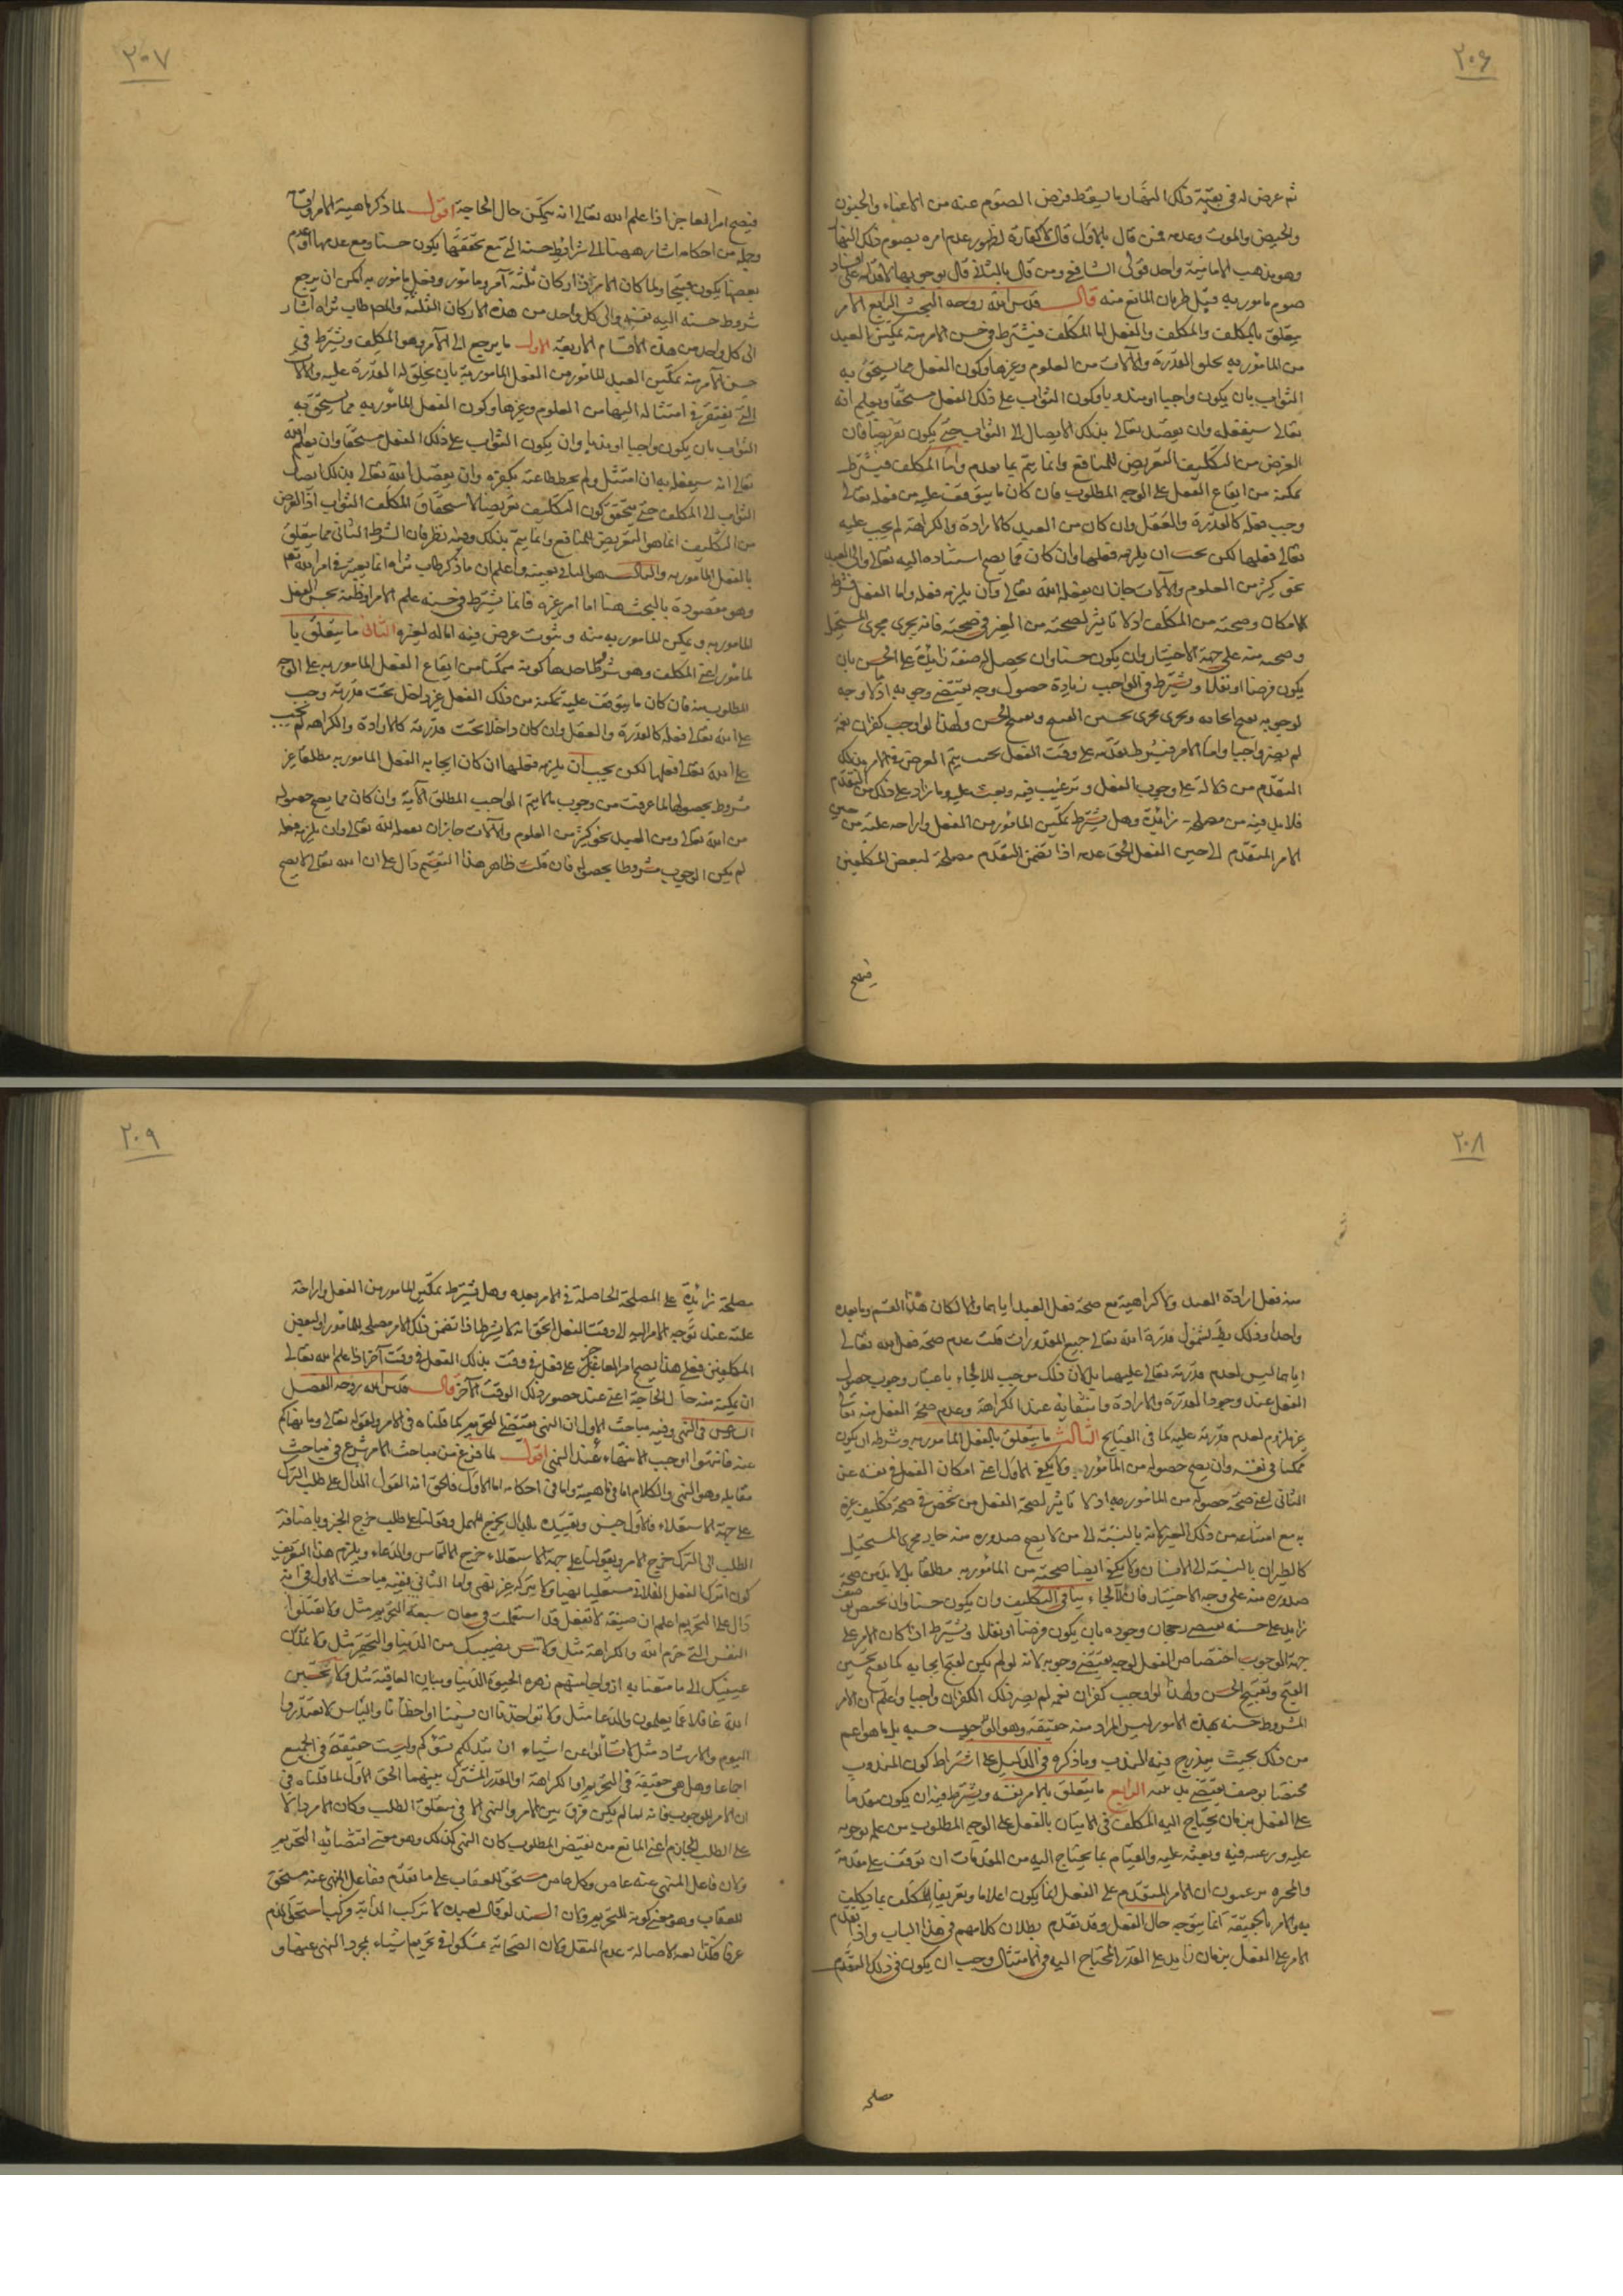 ٢٠٦
ثم عرض له فى بقية ذلك النهار ما يسقط فرض الصوم عنه من الاغماء والجنون
والحيض والموت وعدمه فمن قال بالاول قال لا كفارة لظهور عدم امره بصوم ذلك النهار
وهو مذهب الامامية واحد قولى الشافعى ومن قال بالثانى قال بوجوبها لاقدامه على افساد
صوم مامور به قبل طريان المانع منه قال قدس الله روحه البحث الرابع الامر
يتعلق بالمكلف والمكلف والفعل اما المكلف فيشترط فى حسن الامر منه تمكين العبد
من المامور به بخلق القدرة والآلات من العلوم وغيرها وكون الفعل مما يستحق به
الثواب بان يكون واجبا او مندوبا وكون الثواب على ذلك الفعل مستحقا ويعلم انه
تعالى سيفعله وان يقصد تعالى بذلك الايصال الى الثواب حتى يكون تعريضا فان
الغرض من التكليف التعريض للمنافع وانما يتم بما تقدم واما المكلف فيشترط
تمكنه من ايقاع الفعل على الوجه المطلوب فان كان ما يتوقف عليه من فعله تعالى
وجب فعله كالقدرة والعقل وان كان من العبد كالارادة والكراهة لم يجب عليه
تعالى فعلها لكن يجب ان يلزمه فعلها وان كان مما يصح استناده اليه تعالى والى العبد
نحو كثير من العلوم والآلات جاز ان يفعله الله تعالى وان يلزمه فعله واما الفعل فشرط
الامكان وصحته من المكلف اذ لا تاثير لصحته من الغير فى صحته فانه يجرى مجرى المستحيل
وصحته منه على جهة الاختيار وان يكون حسنا وان يحصل له صفة زايدة على الحسن بان
يكون فرضا او نفلا ويشترط فى الواجب زيادة حصول وجه يقتضى وجوبه اذ لا وجه
لوجوبه يقبح ايجابه ويجرى مجرى تحسين القبيح وتقبيح الحسن ولهذا لو اوجب كفران نعمة
لم يصر واجبا واما الامر فيشترط تقدمه على وقت الفعل بحيث يتم الغرض فى الامر بذلك
المتقدم من دلالة على وجوب الفعل وترغيب فيه وبعث عليه وما زاد على ذلك من التقدم
فلا بد فيه من مصلحة زائدة وهل يشترط تمكين المامور من الفعل وازاحة علته من حين
الامر المتقدم الى حين الفعل الحق عدمه اذا تضمن المتقدم مصلحة لبعض المكلفين
فيصح
٢٠٧
فيصح امر العاجز اذا علم الله تعالى انه يتمكن حال الحاجة اقول لما ذكر ماهية الامر واقسامه
وجملة من احكامه اشار ههنا الى شرائط حسنه التى مع تحققها يكون حسنا ومع عدمها او عدم
بعضها يكون قبيحا ولما كان الامر ذا اركان ثلثة آمر ومامور وفعل مامور به امكن ان يرجع
شروط حسنه اليه نفسه والى كل واحد من هذه الاركان الثلثة والمص طاب ثراه اشار
الى كل واحد من هذه الاقسام الاربعة الاول ما يرجع الى الآمر وهو المكلف ويشترط فى
حسن الامر منه تمكين العبد المامور من الفعل المامور به بان يخلق له القدرة عليه والآلات
التى يفتقر فى امتثاله اليها من العلوم وغيرها وكون الفعل المامور به مما يستحق به
الثواب بان يكون واجبا او ندبا وان يكون الثواب على ذلك الفعل مستحقا وان يعلم الله
تعالى انه سيفعله به ان امتثل ولم يحبط طاعته بكفره وان يقصد الله تعالى بذلك ايصال
الثواب الى المكلف حتى يتحقق كون التكليف تعريضا لاستحقاق المكلف الثواب اذ الغرض
من التكليف انما هو التعريض للمنافع وانما يتم بذلك وفيه نظر فان الشرط الثانى مما يتعلق
بالفعل المامور به والثالث هو الثانى بعينه واعلم ان ما ذكر طاب ثراه انما يعتبر فى امر الله تعالى
وهو مقصوده بالبحث هنا اما امر غيره فانما يشترط فى حسنه علم الامر او ظنه بحسن الفعل
المامور به وتمكن المامور به منه وثبوت غرض فيه اما له او لغيره الثانى ما يتعلق با
لمامور اعنى المكلف وهو شروط احدها كونه متمكنا من ايقاع الفعل المامور به على الوجه
المطلوب منه فان كان ما يتوقف عليه تمكنه من ذلك الفعل غير داخل تحت قدرته وجب
على الله تعالى فعله كالقدرة والعقل وان كان داخلا تحت قدرته كالارادة والكراهة لم يجب
على الله تعالى فعلها لكن يجب ان يلزمه فعلها ان كان ايجابه الفعل المامور به مطلقا غير
مشروط بحصولها لما عرفت من وجوب ما لا يتم الواجب المطلق الا به وان كان مما يصح حصوله
من الله تعالى ومن العبد نحو كثير من العلوم والآلات جاز ان يفعله الله تعالى وان يلزمه فعله
لم يكن الوجوب مشروطا بحصوله فان قلت ظاهر هذا التقسيم دال على ان الله تعالى لا يصح
٢٠٨
منه فعل ارادة العبد ولا كراهيته مع صحة فعل العبد اياهما والا لكان هذا القسم وما بعده
واحدا وذلك بشمول قدرة الله تعالى جميع المقدورات قلت عدم صحة فعل الله تعالى
اياهما ليس لعدم قدرته تعالى عليهما بل لان ذلك موجب للالجاء باعتبار وجوب حصول
الفعل عند وجود القدرة والارادة وانتفائه عند الكراهة وعدم صحة الفعل منه تعالى
غير ملزوم لعدم قدرته عليه كما فى القبايح الثالث ما يتعلق بالفعل المامور به وشرطه ان يكون
ممكنا فى نفسه وان يصح حصوله من المامور به ولا يكفى الاول اعنى امكان الفعل فى نفسه عن
الثانى اعنى صحة حصوله من المامور به اذ لا تاثير لصحة الفعل من شخص فى صحة تكليف غيره
به مع امتناعه من ذلك الغير لانه بالنسبة الى من لا يصح صدوره منه جار مجرى المستحيل
كالطيران بالنسبة الى الانسان ولا يكفى ايضا صحته من المامور به مطلقا بل لا بد من صحة
صدوره منه على وجه الاختيار فان الالجاء ينافى التكليف وان يكون حسنا وان يختص بوصف
زايد على حسنه يقتضى رجحان وجوده بان يكون فرضا او نفلا ويشترط اذا كان الامر على
جهة الوجوب اختصاص الفعل لوجه يقتضى وجوبه لانه لو لم يكن لقبح ايجابه كما يقبح تحسين
القبيح وتقبيح الحسن ولهذا لو اوجب كفران نعمة لم يصر ذلك الكفران واجبا واعلم ان الامر
المشروط حسنه بهذه الامور ليس المراد منه حقيقته وهو الوجوب حسبه بل ما هو اعم
من ذلك بحيث يندرج فيه المندوب وما ذكره فى الدليل على اشتراط كون المندوب
مختصا بوصف يقتضى ندبيته الرابع ما يتعلق بالامر نفسه ويشترط فيه ان يكون متقدما
على الفعل بزمان يحتاج اليه المكلف فى الاتيان بالفعل على الوجه المطلوب من علمه بوجوبه
عليه ورغبته فيه وبعثه عليه والقيام بما يحتاج اليه من المقدمات ان توقف على مقدمة
والمجبرة يزعمون ان الامر المتقدم على الفعل انما يكون اعلاما وتعريفا للمكلف بما يكلف
به والامر بالحقيقة انما يتوجه حال الفعل وقد تقدم بطلان كلامهم فى هذا الباب واذا تقدم
الامر على الفعل بزمان زايد على القدر المحتاج اليه فى الامتثال وجب ان يكون فى ذلك التقدم
مصلحة
٢٠٩
مصلحة زائدة على المصلحة الحاصلة فى الامر بعده وهل يشترط تمكين المامور من الفعل وازاحة
علته عند توجه الامر اليه لا وقت الفعل الحق انه لا يشترط اذا تضمن ذلك الامر مصلحة للمامور او لبعض
المكلفين فعلى هذا يصح امر العاجز عن فعل فى وقت بذلك الفعل فى وقت آخر اذا علم الله تعالى
انه يمكنه منه حال الحاجة اعنى عند حضور ذلك الوقت الآخر قال قدس الله روحه الفصل
السادس فى النهى وفيه مباحث الاول ان النهى يقتضى التحريم كما قلناه فى الامر ولقوله تعالى وما نهاكم
عنه فانتهوا اوجب الانتهاء عند النهى اقول لما فرغ من مباحث الامر شرع فى مباحث
مقابله وهو النهى والكلام اما فى ماهيته واما فى احكامه اما الاول فالحق انه القول الدال على طلب الترك
على جهة الاستعلاء فالقول جنس وتقييده بالدال يخرج المهمل وقولنا على طلب خرج الخبر وباضافة
الطلب الى الترك خرج الامر وبقولنا على جهة الاستعلاء خرج الالتماس والدعاء ويلزم هذا التعريف
كون اترك الفعل الفلانى مستعليا نهيا ولا تتركه غير نهى واما الثانى ففيه مباحث الاول فى انه
دال على التحريم اعلم ان صيغة لا تفعل قد استعملت فى معان سبعة التحريم مثل ولا تقتلوا
النفس التى حرم الله والكراهة مثل ولا تنس نصيبك من الدنيا والتحقير مثل ولا تمدن
عينيك الى ما متعنا به ازواجا منهم زهرة الحيوة الدنيا وبيان العاقبة مثل ولا تحسبن
الله غافلا عما يعلمون والدعا مثل لا تواخذنا ان نسينا او اخطأنا والياس لا تعتذروا
اليوم والارشاد مثل لا تسألوا عن اشياء ان تبد لكم تسؤكم وليست حقيقة فى الجميع
اجماعا وهل هى حقيقة فى التحريم او الكراهة او القدر المشترك بينهما الحق الاول لما قلناه فى
ان الامر للوجوب فانه لما لم يكن فرق بين الامر والنهى الا فى متعلق الطلب وكان الامر دالا
على الطلب الجازم اعنى المانع من نقيض المطلوب كان النهى كذلك وهو معنى اقتضائه التحريم
ولان فاعل المنهى عنه عاص وكل عاص مستحق للعقاب على ما تقدم ففاعل المنهى عنه مستحق
للعقاب وهو معنى كونه للتحريم ولان السيد لو قال لعبده لا تركب الدابة فركب استحق الذم
عرفا فكذا لغة لاصالة عدم النقل ولان الصحابة تمسكوا فى تحريم اشياء بمجرد النهى عنها و